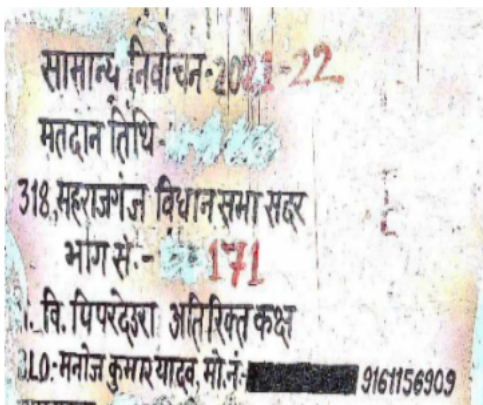 सामान्य निर्वाचन-2021-22
मतदान तिथि-
318,महराजगंज विधान सभा सदर
भाग सं.- 171
वि. पिपरदेउरा अतिरिक्त कक्ष
BLO:-मनोज कुमार यादव, मो.नं:- 9161156909